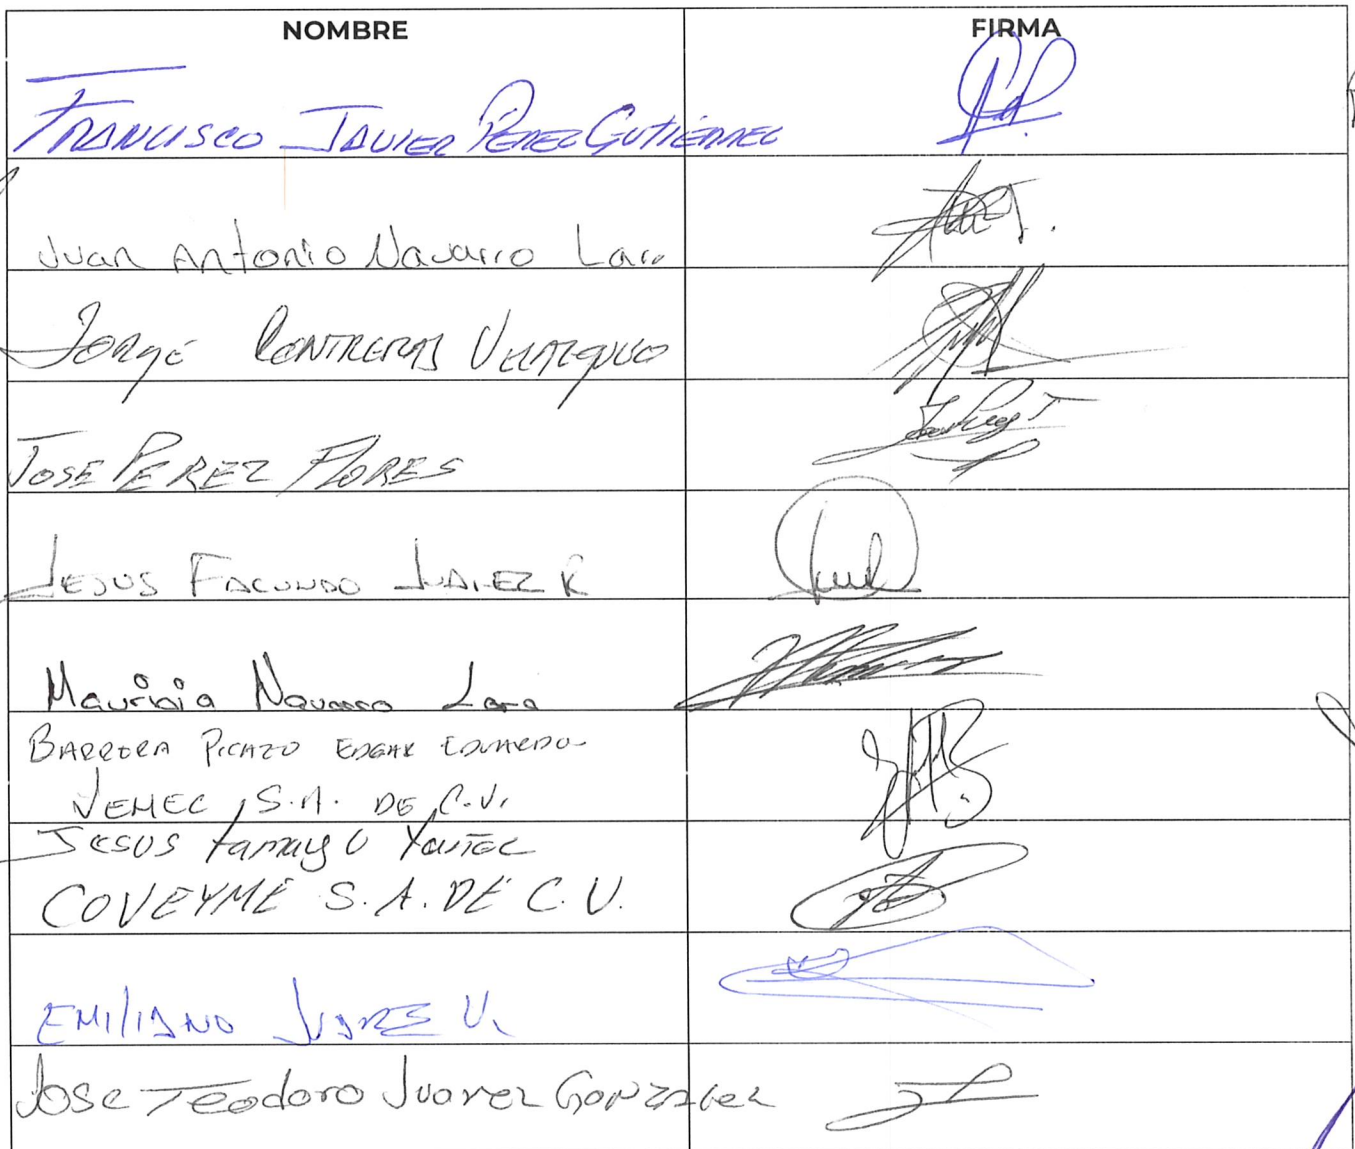 NOMBRE FIRMA
FRANCISCO JAVIER PEREZ GUTIÉRREZ
Juan Antonio Navarro Lara
JORGE CONTRERAS VELAZQUEZ
JOSE PEREZ FLORES
JESUS FACUNDO JUAREZ R
Mauricio Navarro Lara
BARRERA PICAZO EDGAR EDUARDO
VEMEC, S.A. DE C.V.
JESUS tamayo
COVEYME S.A. DE C.V.
EMILIANO JUARES V.
Jose Teodoro Juarez Gonzalez